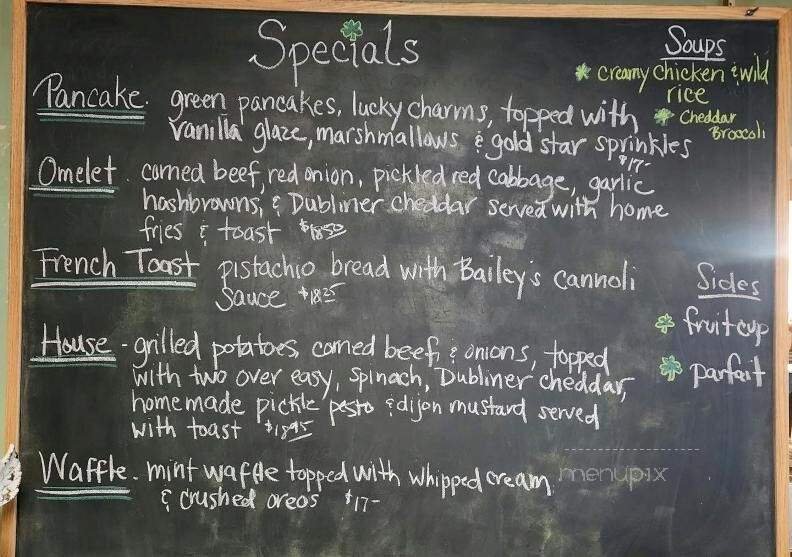 Specials
Pancake. green pancakes, lucky charms, topped with
vanilla glaze, marshmallows & gold star sprinkles
$17-
Omelet. corned beef, red onion, pickled red cabbage, garlic
hashbrowns, & Dubliner cheddar served with home
fries & toast $18.50
French Toast pistachio bread with Bailey's cannoli
sauce $18.25
House - grilled potatoes, corned beef, & onions, topped
with two over easy, spinach, Dubliner cheddar,
homemade pickle pesto & dijon mustard served
with toast $18.95
Waffle. mint waffle topped with whipped cream
& crushed oreos $17-
Soups
creamy chicken & wild
rice
Cheddar
Broccoli
Sides
fruit cup
parfait
menupix